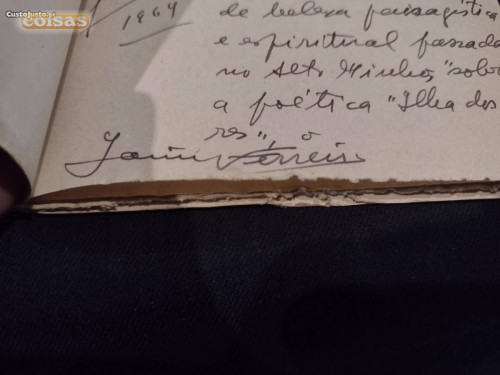 CustoJusto.pt
coisas
1964
de beleza paisagística
e espiritual passada
no Alto Minho, "sobr
a poética "Ilha dos
res", o
Ferreira